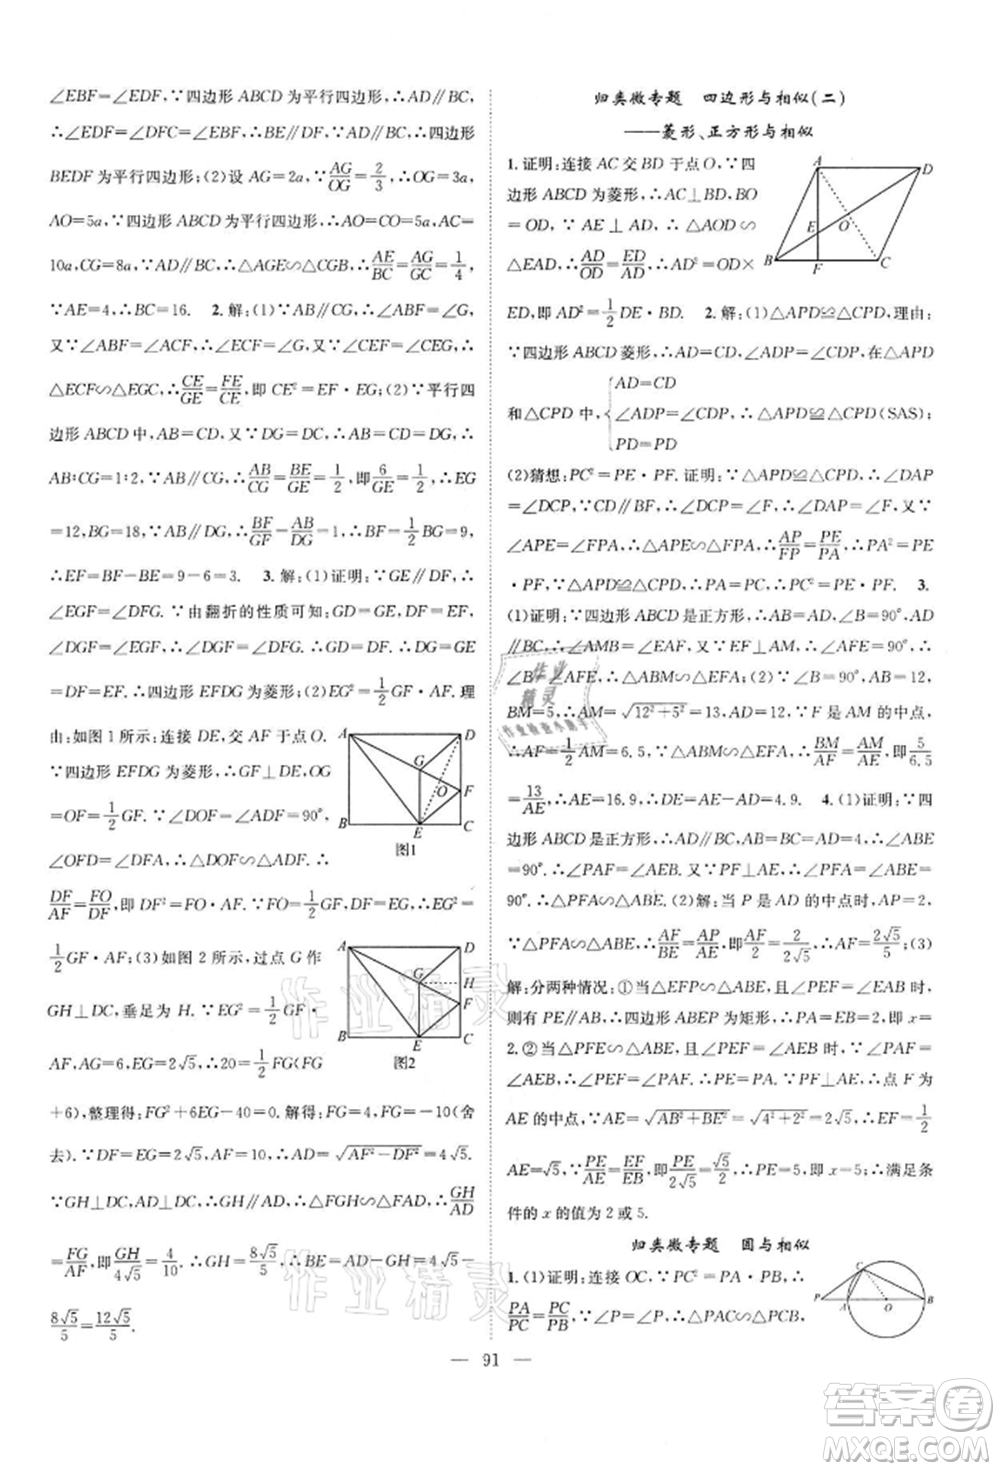 ∠EBF=∠EDF,∵四边形 ABCD 为平行四边形,∴AD∥BC,
∴∠EDF=∠DFC=∠EBF,∴BE∥DF,又∵DE∥BF,∴四边形
BEDF 为平行四边形;(2)设 AG=2a,∵AG/OG=2/3,∴OG=3a,
AO=5a,∵四边形 ABCD 为平行四边形,∴AO=CO=5a,AC=
10a,CG=8a,∵AD∥BC,∴△AGE∽△CGB,∴AE/BC=AG/GC=1/4,
∵AE=4,∴BC=16. 2.解:(1)∵AB∥CG,∴∠ABF=∠G,
又∵∠ABF=∠ACF,∴∠ECF=∠G,又∵∠CEF=∠CEG,∴
△ECF∽△EGC,∴CE/GE=FE/CE,即 CE²=EF·EG;(2)∵平行四
边形 ABCD 中,AB=CD,又∵DG=DC,∴AB=CD=DG,∴
AB:CG=1:2,∵AB∥CG,∴AB/CG=BE/GE=1/2,即6/GE=1/2,∴EG
=12,BG=18,∵AB∥DG,∴BF/GF=AB/DG=1,∴BF=1/2BG=9,
∴EF=BF-BE=9-6=3. 3.解:(1)证明:∵GE∥DF,∴
∠EGF=∠DFG. ∵由翻折的性质可知:GD=GE,DF=EF,
∠DGF=∠EGF,∴∠DGF=∠DFG. ∴GD=DF. ∴DG=GE
=DF=EF. ∴四边形 EFDG 为菱形;(2)EG²=1/2GF·AF. 理
由:如图 1所示:连接 DE,交 AF 于点O.
∵四边形 EFDG 为菱形,∴GF⊥DE,OG
=OF=1/2GF. ∵∠DOF=∠ADF=90°,
∠OFD=∠DFA,∴△DOF∽△ADF. ∴
DF/AF=FO/DF,即 DF²=FO·AF. ∵FO=1/2GF,DF=EG,∴EG²=
1/2GF·AF;(3)如图 2 所示,过点 G 作
GH⊥DC,垂足为 H. ∵EG²=1/2GF·
AF,AG=6,EG=2√5,∴20=1/2FG(FG
+6),整理得:FG²+6FG-40=0. 解得:FG=4,FG=-10(舍
去).∵DF=GE=2√5,AF=10,∴AD=√AF²-DF²=4√5.
∵GH⊥DC,AD⊥DC,∴GH∥AD,∴△FGH∽△FAD,∴GH/AD
=FG/AF,即GH/4√5=4/10. ∴GH=8√5/5. ∴BE=AD-GH=4√5-
8√5/5=12√5/5.
A D G O F B E C
图1
A D G H F B E C
图2
归类微专题 四边形与相似(二)
——菱形、正方形与相似
1.证明:连接 AC 交 BD 于点 O,∵四
边形 ABCD 为菱形,∴AC⊥BD,BO=
OD,∵AE⊥AD,∴△AOD∽
△EAD,∴AD/OD=ED/AD,∴AD²=OD×
A D E O B F C
ED,即 AD²=1/2DE·BD. 2.解:(1)△APD≌△CPD,理由:
∵四边形 ABCD 菱形,∴AD=CD,∠ADP=∠CDP,在△APD
和△CPD 中,{AD=CD
∠ADP=∠CDP,∴△APD≌△CPD(SAS);
PD=PD
(2)猜想:PC²=PE·PF. 证明:∵△APD≌△CPD,∴∠DAP
=∠DCP,∵CD∥BF,∴∠DCP=∠F,∴∠DAP=∠F,又∵
∠APE=∠FPA,∴△APE∽△FPA,∴AP/FP=PE/PA,∴PA²=PE
·PF,∵△APD≌△CPD,∴PA=PC,∴PC²=PE·PF. 3.
(1)证明:∵四边形 ABCD 是正方形,∴AB=AD,∠B=90°,AD
∥BC,∴∠AMB=∠EAF,又∵EF⊥AM,∴∠AFE=90°,∴
∠B=∠AFE,∴△ABM∽△EFA;(2)∵∠B=90°,AB=12,
BM=5,∴AM=√12²+5²=13,AD=12,∵F 是 AM 的中点,
∴AF=1/2AM=6.5,∵△ABM∽△EFA,∴BM/AF=AM/AE,即5/6.5
=13/AE,∴AE=16.9,∴DE=AE-AD=4.9. 4.(1)证明:∵四
边形 ABCD 是正方形,∴AD∥BC,AB=BC=AD=4,∴∠ABE
=90°,∴∠PAF=∠AEB. 又∵PF⊥AE,∴∠PFA=∠ABE=
90°.∴△PFA∽△ABE.(2)解:当 P 是 AD 的中点时,AP=2,
∵△PFA∽△ABE,∴AF/BE=AP/AE,即AF/2=2/2√5,AF=2√5/5;(3)
解:分两种情况:①当△EFP∽△ABE,且∠PEF=∠EAB 时,
则有 PE∥AB,∴四边形 ABEP 为矩形,∴PA=EB=2,即 x=
2.②当△PFE∽△ABE,且∠PEF=∠AEB 时,∵∠PAF=
∠AEB,∴∠PEF=∠PAF,∴PE=PA,∵PF⊥AE,∴点 F 为
AE 的中点,∵AE=√AB²+BE²=√4²+2²=2√5,∴EF=1/2
AE=√5,∵PE/AE=EF/EB,即PE/2√5=√5/2,∴PE=5,即 x=5,∴满足条
件的 x 的值为 2 或 5.
归类微专题 圆与相似
1.(1)证明:连接 OC,∵PC²=PA·PB,∴
PA/PC=PC/PB,∵∠P=∠P,∴△PAC∽△PCB,
P A C O B
— 91 —
作业精灵
作业精灵
作业精灵
作业检查小助手
答案圈
MXQE.COM